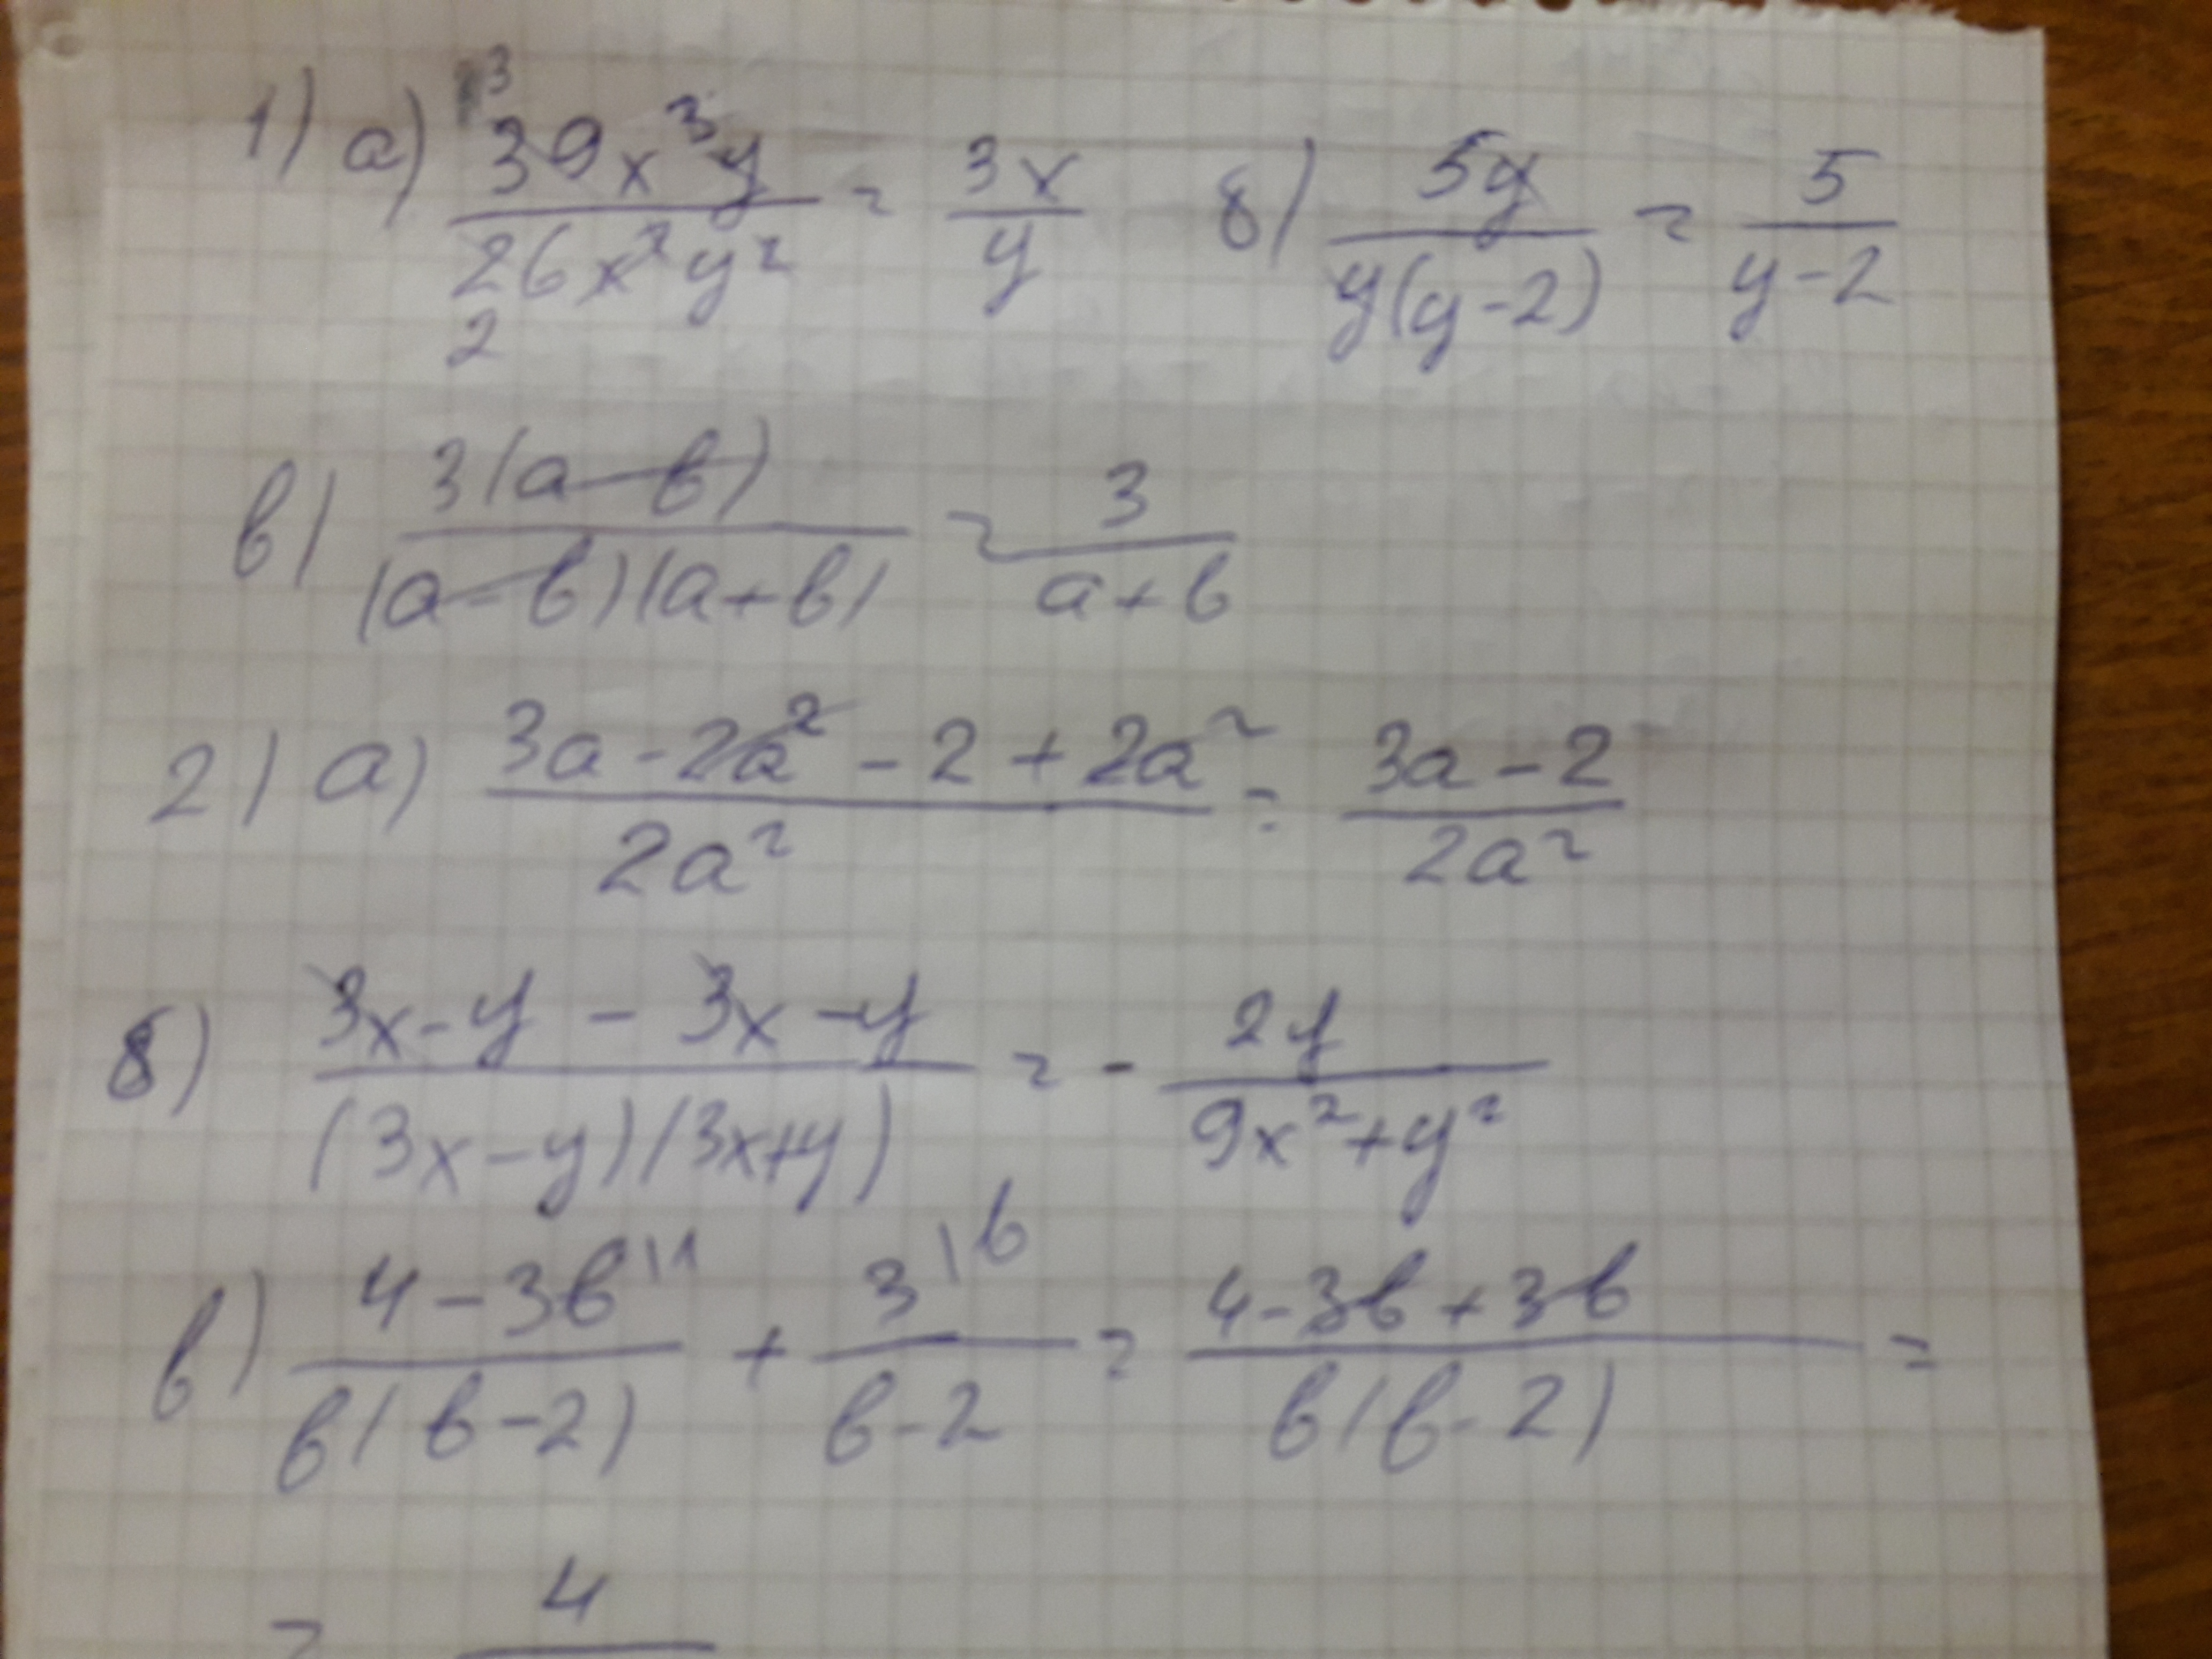 1) а) 39x³y / 26x²y² = 3x / y б) 5y / y(y-2) = 5 / y-2
3
2
в) 3(a-b) / (a-b)(a+b) = 3 / a+b
2) а) 3a-2a²-2+2a² / 2a² = 3a-2 / 2a²
б) 3x-y-3x-y / (3x-y)(3x+y) = - 2y / 9x²+y²
в) 4-3b\1 / b(b-2) + 3\b / b-2 = 4-3b+3b / b(b-2) =
= 4